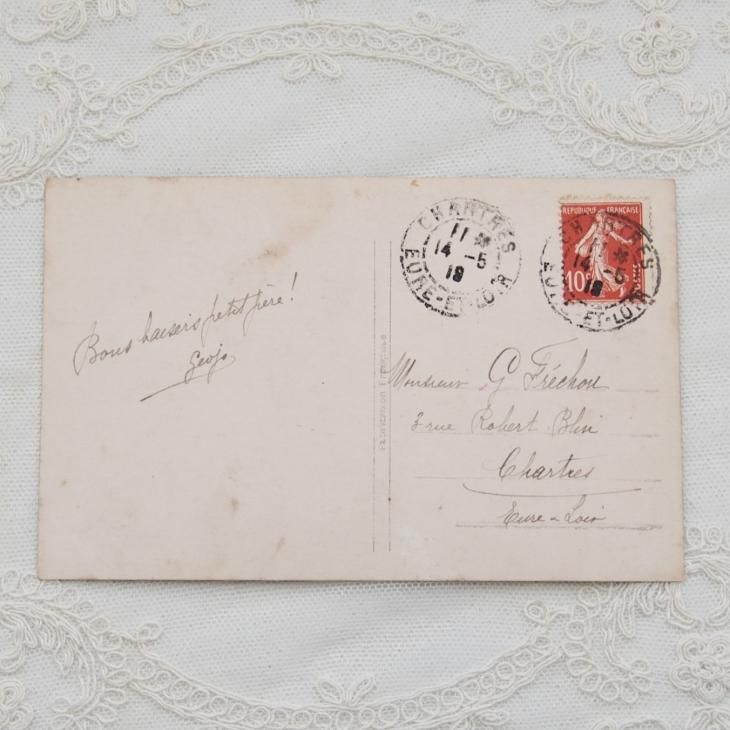 Bons baisers petit père!
Geojo
CHARTRES
11 *
14 -5
19
EURE-ET-LOIR
REPUBLIQUE FRANÇAISE
10c
POSTES
CHARTRES
11 *
14 -5
19
EURE-ET-LOIR
Fabrication Française
Monsieur G Fréchou
3 rue Robert Blin
Chartres
Eure & Loir